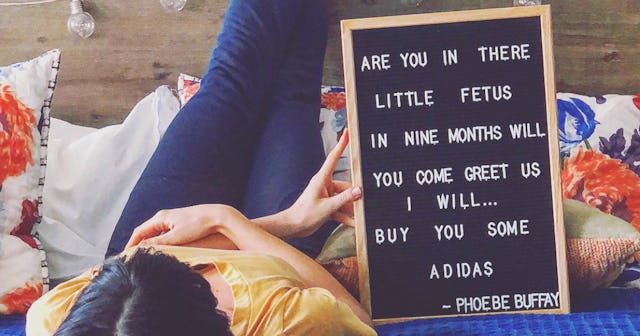 ARE YOU IN THERE
LITTLE FETUS
IN NINE MONTHS WILL
YOU COME GREET US
I WILL...
BUY YOU SOME
ADIDAS
- PHOEBE BUFFAY